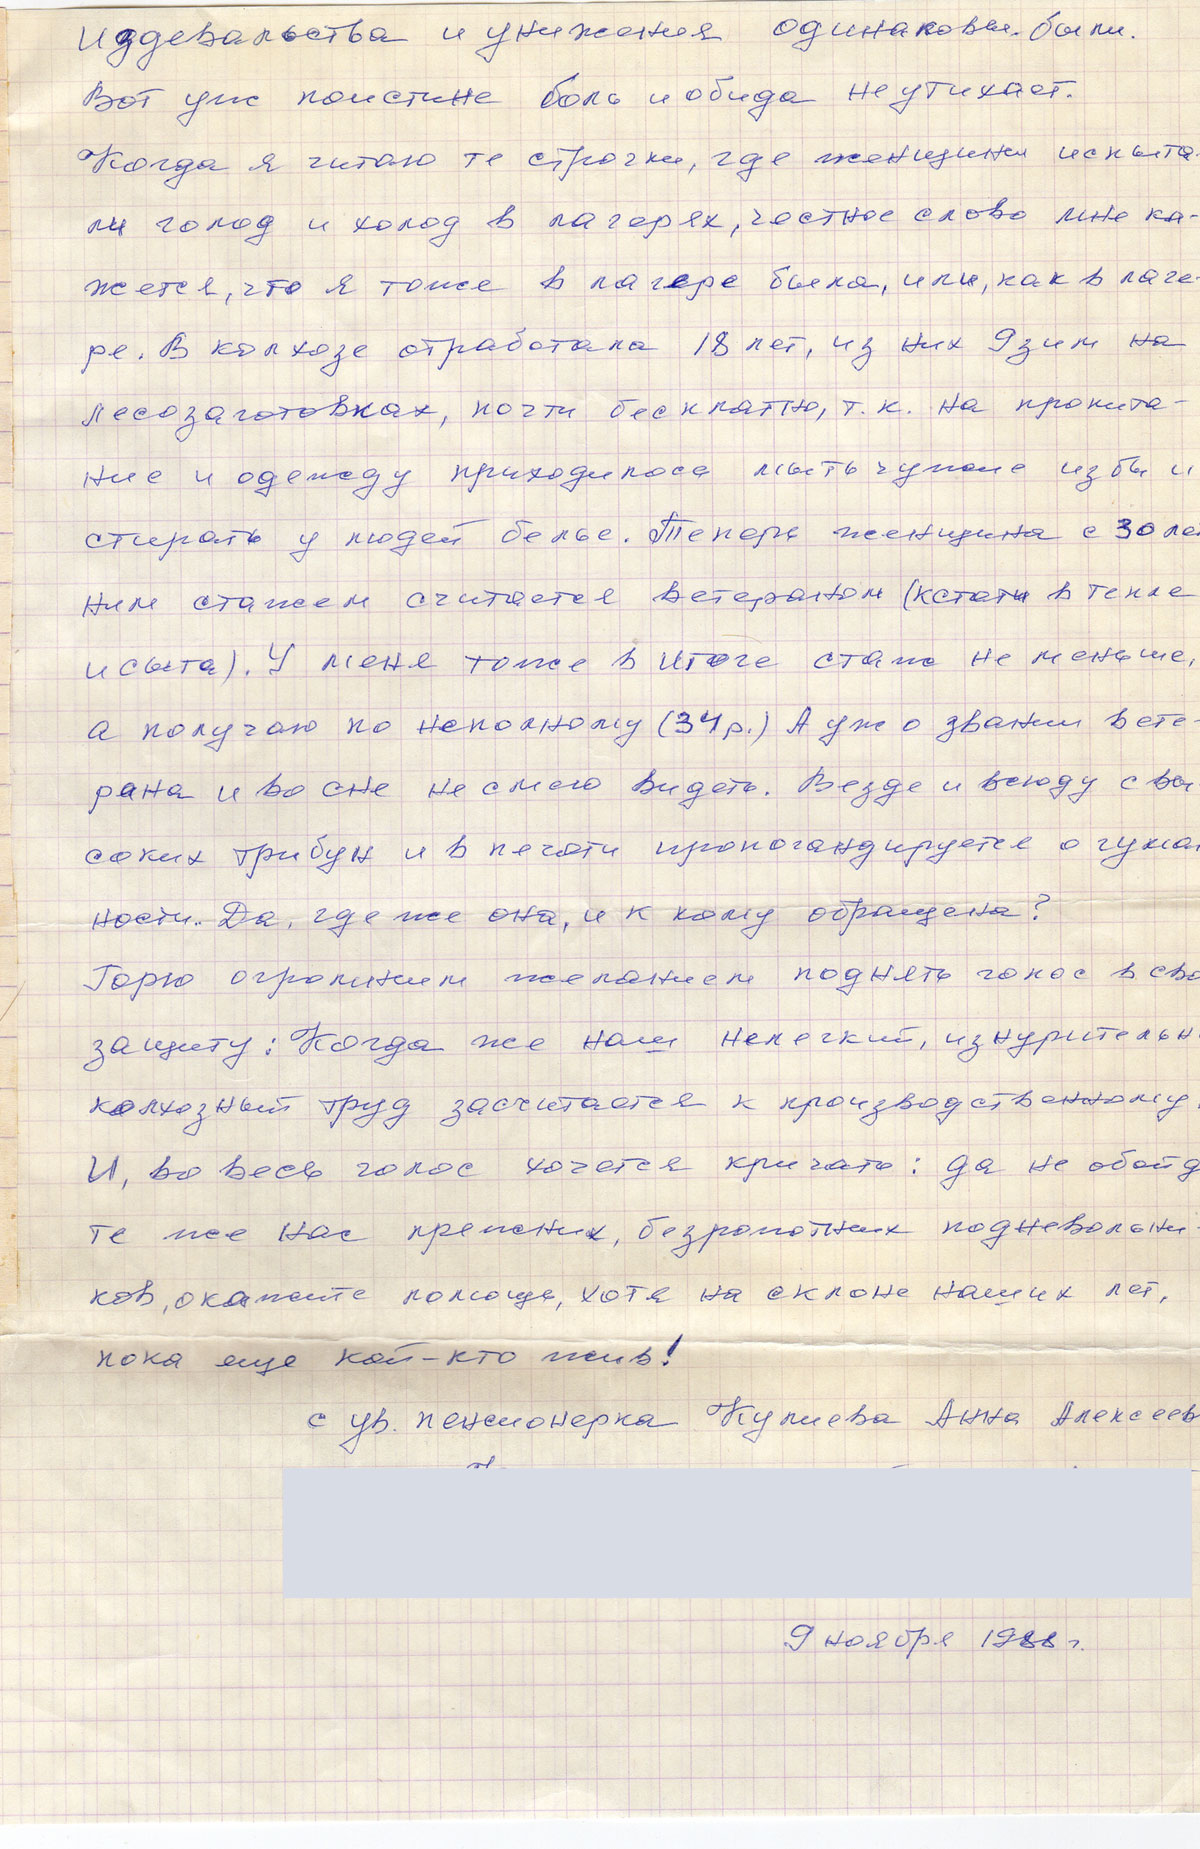 Издевальства и унижения одинаковы были.
Вот уж поистине боль и обида не утихает.
Когда я читаю те строчки, где женщины испыта-
ли голод и холод в лагерях, честное слово мне ка-
жется, что я тоже в лагере была, или, как в лаге-
ре. В колхозе отработала 18 лет, из них 9 зим на
лесозаготовках, почти бесплатно, т.к. на пропита-
ние и одежду приходилось мыть чужие избы и
стирать у людей белье. Теперь женщина с 30 лет
ним стажем считается ветераном (кстати в тепле
и сыта). У меня тоже в итоге стаж не меньше,
а получаю по неполному (34 р.) А уж о звании вете-
рана и во сне не смею видеть. Везде и всюду с вы
соких трибун и в печати пропогандируется о гуман
ности. Да, где же она, и к кому обращена?
Горю огромным желанием поднять голос в сво
защиту: Когда же наш нелегкий, изнурительн
колхозный труд засчитается к производственному.
И, во весь голос хочется кричать: да не обойд
те же нас прежних, безропотных подневольни
ков, окажите помощь, хотя на склоне наших лет,
пока еще кой-кто жив!
с ув. пенсионерка Куллиева Анна Алексеев
9 ноября 1988 г.